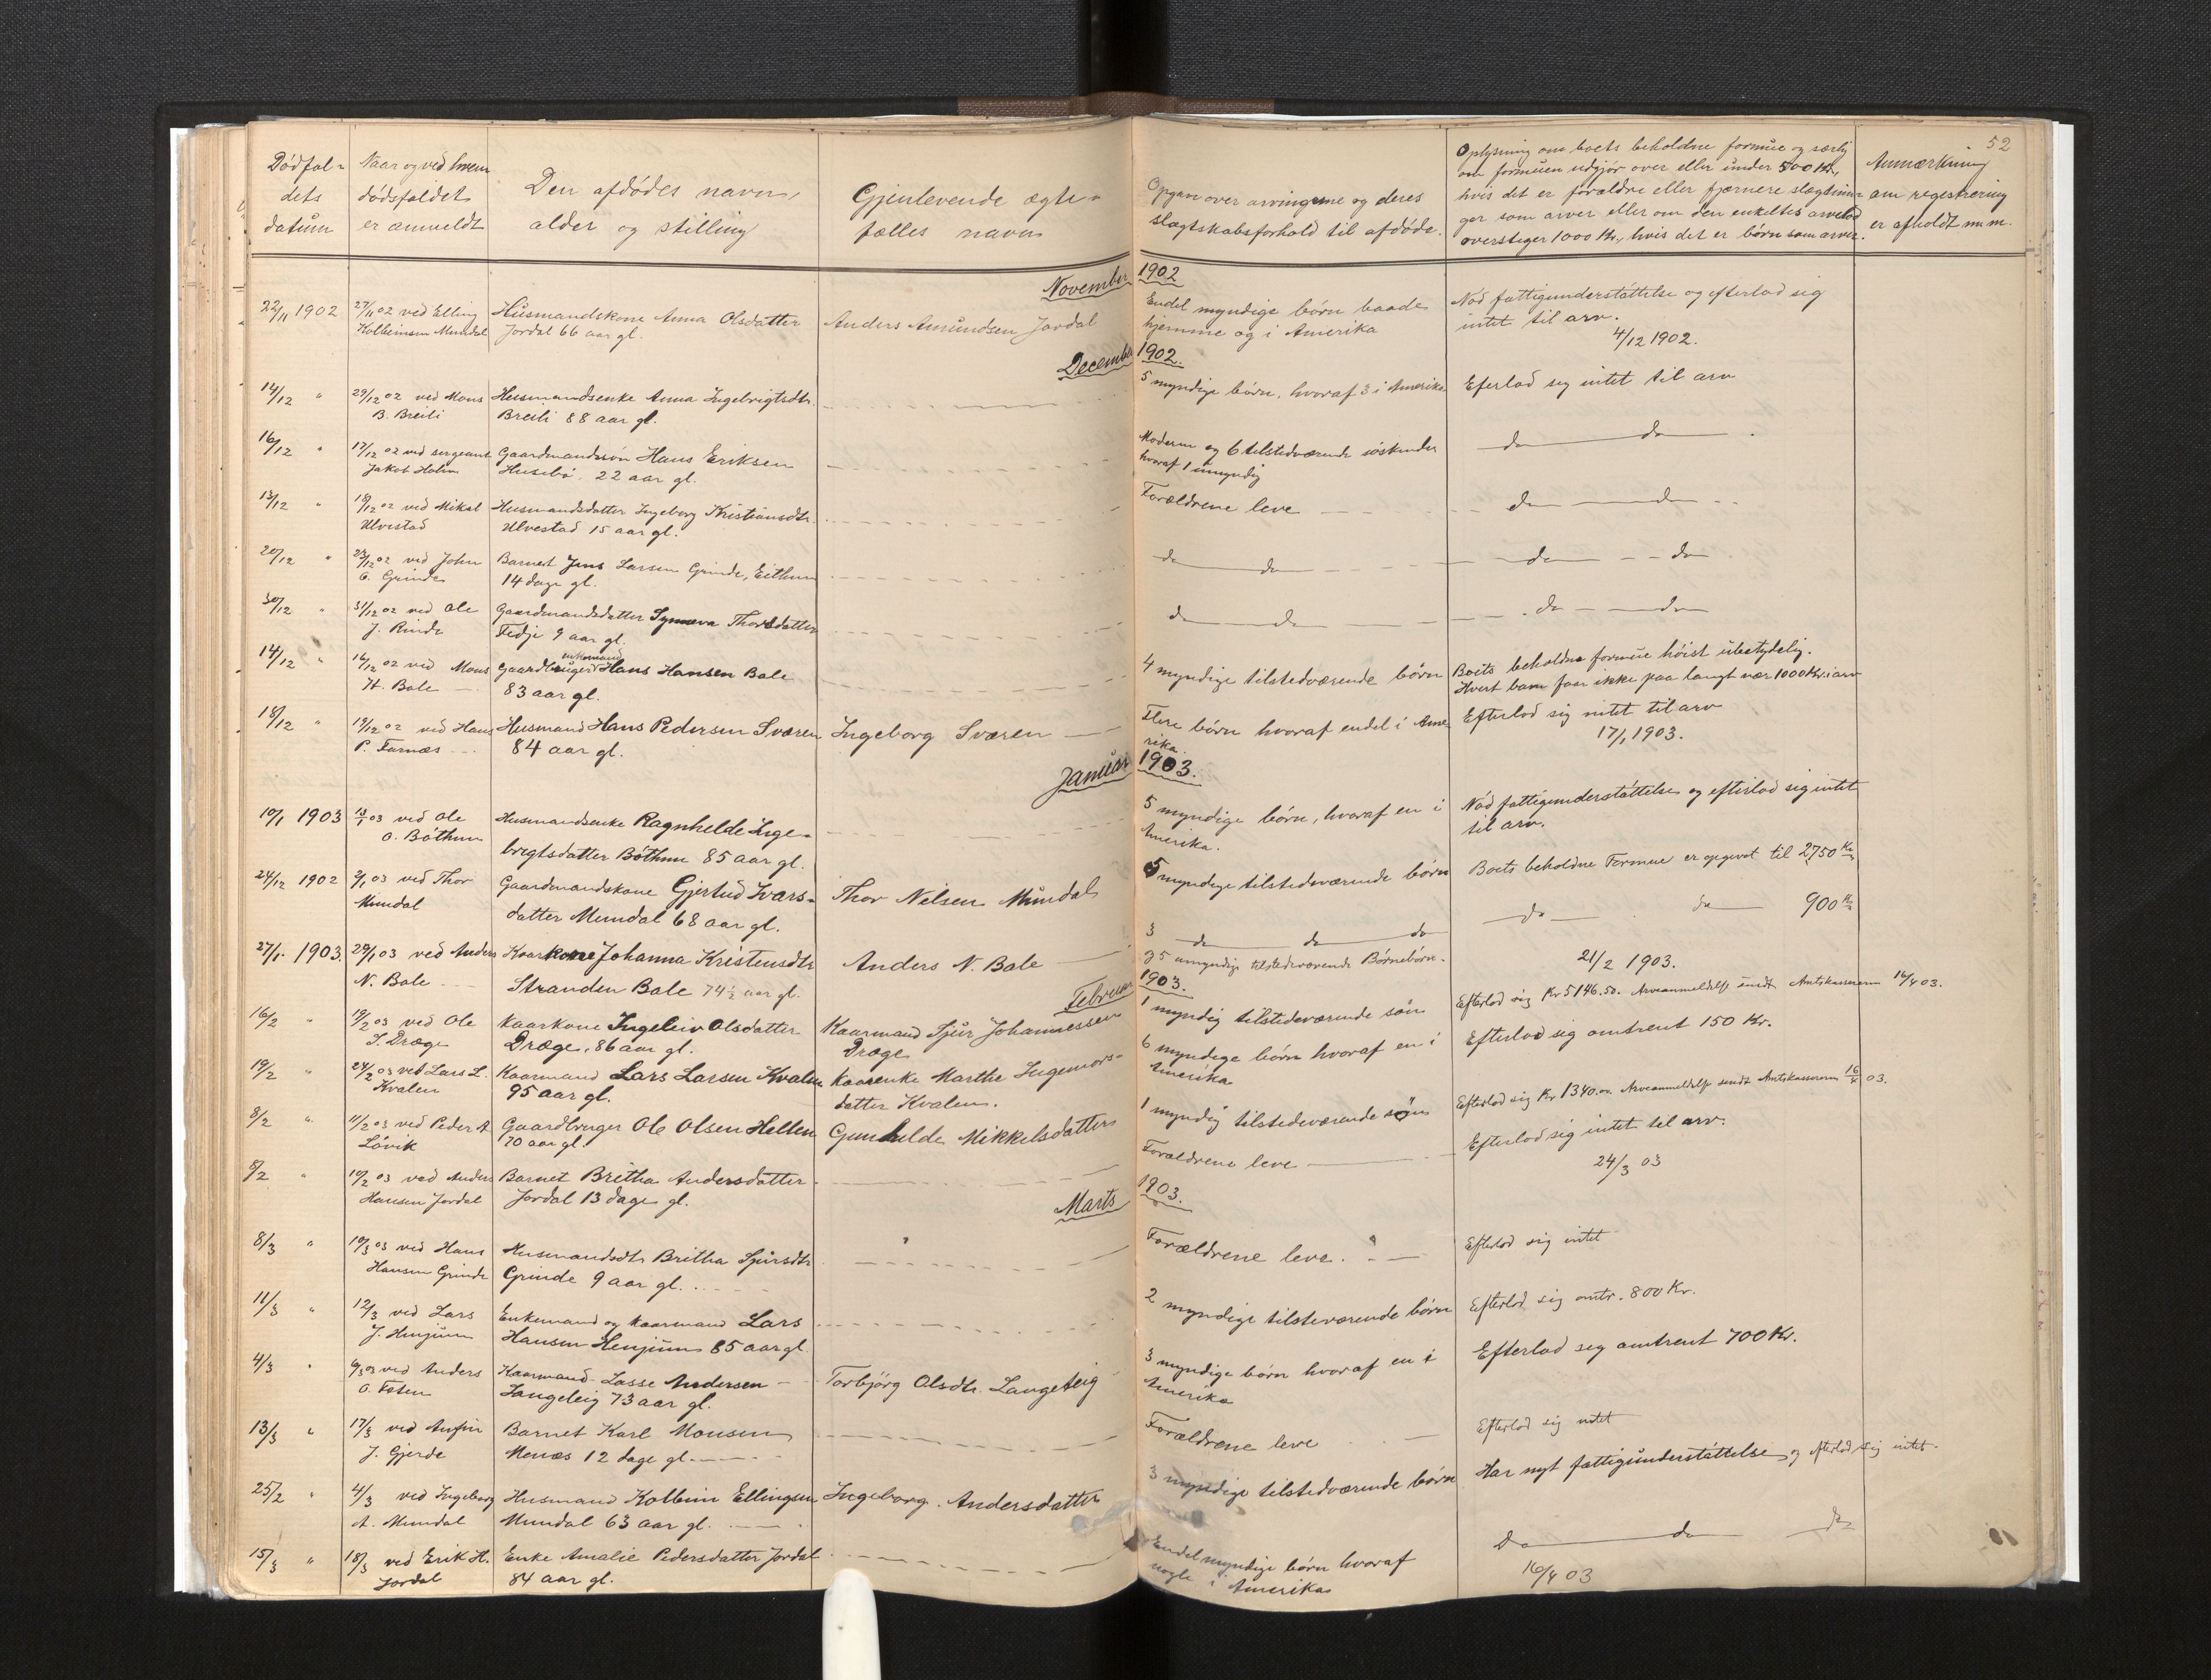 52
Dödfal-
dets
datum
Naar og ved hvem
dödsfaldet
er anmeldt
Den afdödes navn,
alder og stilling
Gjenlevende ægte-
fælles navn
Opgave over arvingerne og deres
slægtskabsforhold til afdöde.
Oplysning om boets beholdne formue og særlig
om formuen udgjör over eller under 500 Kr,
hvis det er forældre eller fjærnere slægtnin-
ger som arver eller om den enkeltes arvelod
overstiger 1000 Kr., hvis det er börn som arver.
Anmærkning
om registrering
er afholdt m. m.
November 1902
22/11 1902
27/11 02 ved Elling
Kolbeinsen Mundal
Husmandskone Anna Olsdatter
Jordal 66 aar gl.
Anders Amundsen Jordal
Endel myndige börn baade
hjemme og i Amerika
Nöd fattigunderstöttelse og efterlod sig
intet til arv.
4/12 1902.
December 1902.
14/12 "
29/12 02 ved Mons
B. Breili
Husmandsenke Anna Ingebrigtsdtr.
Breili 88 aar gl.
5 myndige börn, hvoraf 3 i Amerika
Eferlod sig intet til arv
16/12 "
17/12 02 ved sergeant
Jakob Holm
Gaardmandssön Hans Eriksen
Husebö. 22 aar gl.
Moderen og 6 tilstedværende söskender
hvoraf 1 umyndig
do do
13/12 "
18/12 02 ved Mikal
Ulvestad
Husmandsdatter Ingeborg Kristiansdtr.
Ulvestad 15 aar gl.
Forældrene leve
do do
20/12 "
23/12 02 ved John
O. Grinde
Barnet Jens Larsen Grinde, Eithun
14 dage gl.
do do
do do
30/12 "
31/12 02 ved Ole
J. Rinde
Gaardmandsdatter Synneva Thorsdatter
Fedje 9 aar gl.
do do
do do
14/12 "
16/12 02 ved Mons
H. Bale
enkemand
Gaardbruger Hans Hansen Bale
83 aar gl.
4 myndige tilstedværende börn
Boets beholdne formue höist ubetydelig.
Hvert barn faar ikke paa langt nær 1000 Kr. i arv
18/12 "
19/12 02 ved Hans
P. Farnæs
Husmand Hans Pedersen Sværen
84 aar gl.
Ingeborg Sværen
Flere börn hvoraf endel i Ame-
rika.
Efterlod sig intet til arv
17/1 1903.
Januar 1903.
10/1 1903
13/1 03 ved Ole
O. Böthun
Husmandsenke Ragnhelde Inge-
brigtsdatter Böthun 85 aar gl.
5 myndige börn, hvoraf en i
Amerika.
Nöd fattigunderstöttelse og efterlod sig intet
til arv.
24/12 1902
2/1 03 ved Thor
Mundal
Gaardmandskone Gjertrud Ivars-
datter Mundal 68 aar gl.
Thor Nilsen Mundal
5 myndige tilstedeværende börn
Boets beholdne Formue er opgivet til 2750 Kr
27/1 1903.
29/1 03 ved Anders
N. Bale
Kaarkone Johanna Kristensdtr
Stranden Bale 74½ aar gl.
Anders N. Bale
3 do do do
og 5 umyndige tilstedeværende Börnebörn.
do do 900 Kr
21/2 1903.
Februar 1903.
16/2 "
19/2 03 ved Ole
S. Dræge
Kaarkone Ingeleiv Olsdatter
Dræge, 86 aar gl.
Kaarmand Sjur Johannessen
Dræge
1 myndig tilstedeværende sön
Efterlod sig Kr 5146.50. Arveanmeldelse sendt Amtskassereren 16/4 03.
19/2 "
24/2 03 ved Lars L.
Kvalen
Kaarmand Lars Larsen Kvalen
95 aar gl.
Kaarenke Marthe Ingemors-
datter Kvalen.
6 myndige börn hvoraf en i
Amerika
Efterlod sig omtrent 150 Kr.
8/2 "
11/2 03 ved Peder A
Lövik
Gaardbruger Ole Olsen Hellen
70 aar gl.
Gunhilde Mikkelsdatter
1 myndig tilstedeværende sön
Efterlod sig Kr 1340.00 Arveanmeldelse sendt Amtskassereren 16/4 03.
8/2 "
10/2 03 ved Anders
Hansen Jordal
Barnet Britha Andersdatter
Jordal 13 dage gl.
Forældrene leve
Efterlod sig intet til arv.
24/3 03
Marts 1903.
8/3 "
10/3 03 ved Hans
Hansen Grinde
Husmandsdtr Britha Sjursdtr
Grinde 9 aar gl.
Forældrene leve.
Efterlod sig intet
11/3 "
12/3 ved Lars
J. Henjum
Enkemand og kaarmand Lars
Hansen Henjum 85 aar gl.
2 myndige tilsteværende börn
Efterlod sig omtr. 800 Kr.
4/3 "
6/3 03 ved Anders
O. Fosen
Kaarmand Lasse Andersen
Langeleig 73 aar gl.
Torbjörg Olsdtr. Langeteig
3 myndige börn hvoraf en i
Amerika
Efterlod sig omtrent 700 Kr.
13/3 "
17/3 ved Anfin
J. Gjerde
Barnet Karl Monsen
Menæs 12 dage gl.
Forældrene leve
Efterlod sig intet
25/2 "
4/3 ved Ingeborg
A. Mundal
Husmand Kolbein Ellingsen
Mundal 63 aar gl.
Ingeborg Andersdatter
3 myndige tilstedværende börn
Har nyt fattigunderstöttelse og efterlod sig intet.
15/3 "
18/3 ved Erik H.
Jordal
Enke Amalie Pedersdatter Jordal
84 aar gl.
Endel myndige börn hvoraf
nogle i Amerika
Do do do
16/4 03